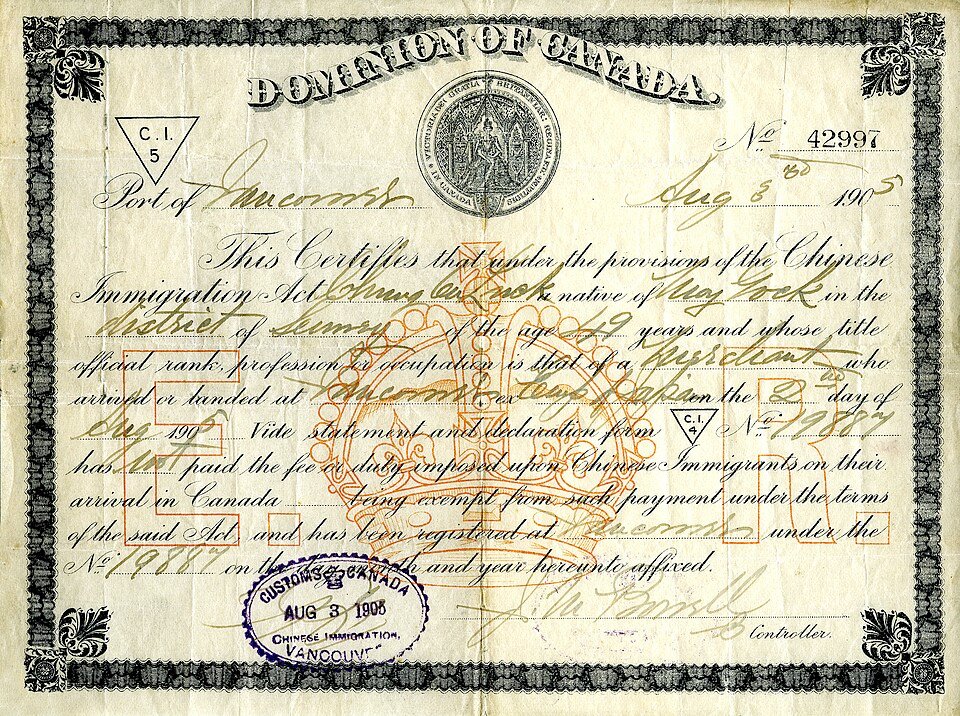 DOMINION OF CANADA.
C. I.
5
VICTORIA DEI GRATIA BRITANNIAR: REGINA
No 42997
Port of Vancouver Aug 3rd 1905
This Certifies that under the provisions of the Chinese
Immigration Act a native of in the
district of of the age 49 years and whose title
official rank, profession or occupation is that of a Merchant who
arrived or landed at Vancouver ex on the 2nd day of
Aug 1905 Vide statement and declaration form C. I. 4 No 19887
has not paid the fee or duty imposed upon Chinese Immigrants on their
arrival in Canada being exempt from such payment under the terms
of the said Act, and has been registered at Vancouver under the
No 19887 on the month and year hereunto affixed.
E. R.
CUSTOMS CANADA
AUG 3 1905
CHINESE IMMIGRATION,
VANCOUVER
Controller.